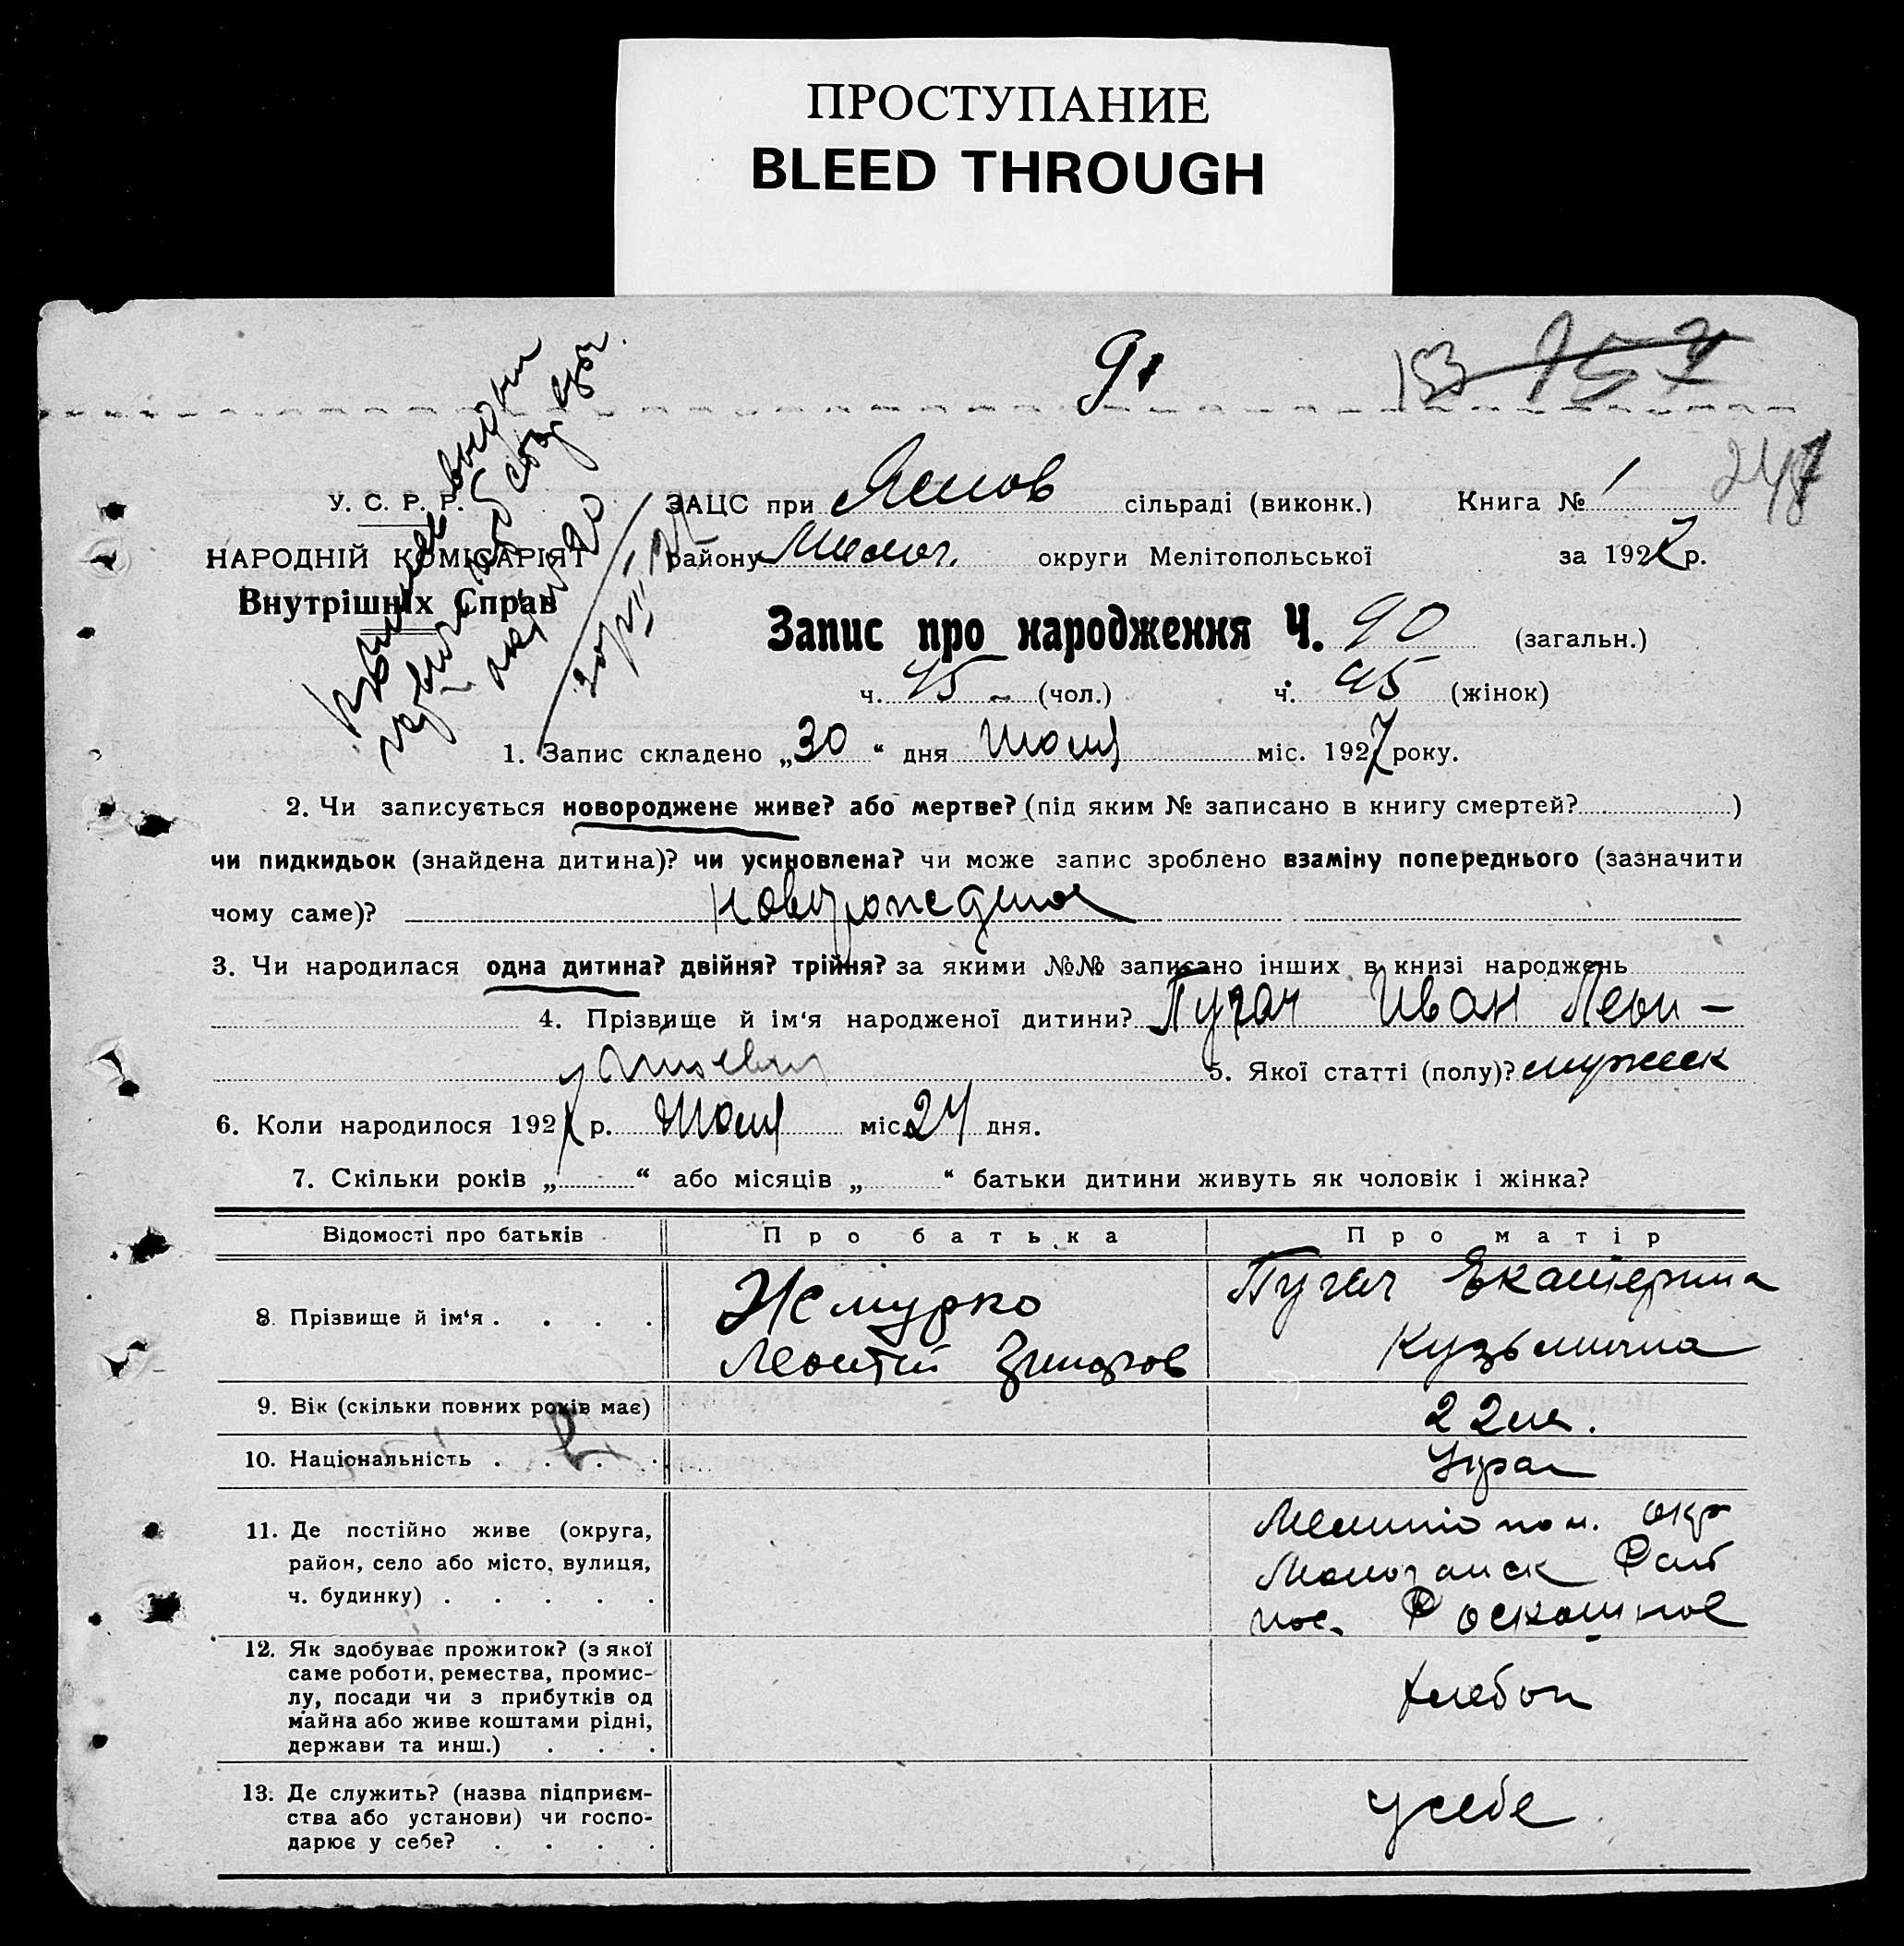 ПРОСТУПАНИЕ
BLEED THROUGH
91
133 157
247
У. С. Р. Р.
НАРОДНІЙ КОМІСАРІЯТ
Внутрішніх Справ
ЗАЦС при Яснов сільраді (виконк.) Книга № 1
району Молоч. округи Мелітопольської за 1927 р.
Запис про народження Ч. 90 (загальн.)
ч. 45 (чол.) ч. 45 (жінок)
1. Запис складено „30“ дня Июля міс. 1927 року.
2. Чи записується новороджене живе? або мертве? (під яким № записано в книгу смертей? )
чи пидкидьок (знайдена дитина)? чи усиновлена? чи може запис зроблено взаміну попереднього (зазначити
чому саме)? новорожденое
3. Чи народилася одна дитина? двійня? трійня? за якими №№ записано інших в книзі народжень
4. Прізвище й ім'я народженої дитини? Пугач Иван Леон-
тиевич 5. Якої статті (полу)? мужск
6. Коли народилося 1927 р. Июля міс. 24 дня.
7. Скільки років „ “ або місяців „ “ батьки дитини живуть як чоловік і жінка?
Відомості про батьків Про батька Про матір
8. Прізвище й ім'я . . . . Жмурко Леонтий Пугач Екатерина
Кузьминична
9. Вік (скільки повних років має) 22 л.
10. Національність . . . . Укра
11. Де постійно живе (округа, Мелитопол. окр
район, село або місто, вулиця, Молочанск Рай
ч. будинку) . . . . . пос. Роскошное
12. Як здобуває прожиток? (з якої
саме роботи, ремества, промис-
лу, посади чи з прибутків од хлебоп
майна або живе коштами рідні,
держави та инш.) . . .
13. Де служить? (назва підприєм-
ства або установи) чи госпо- у себе
дарює у себе? . . . .